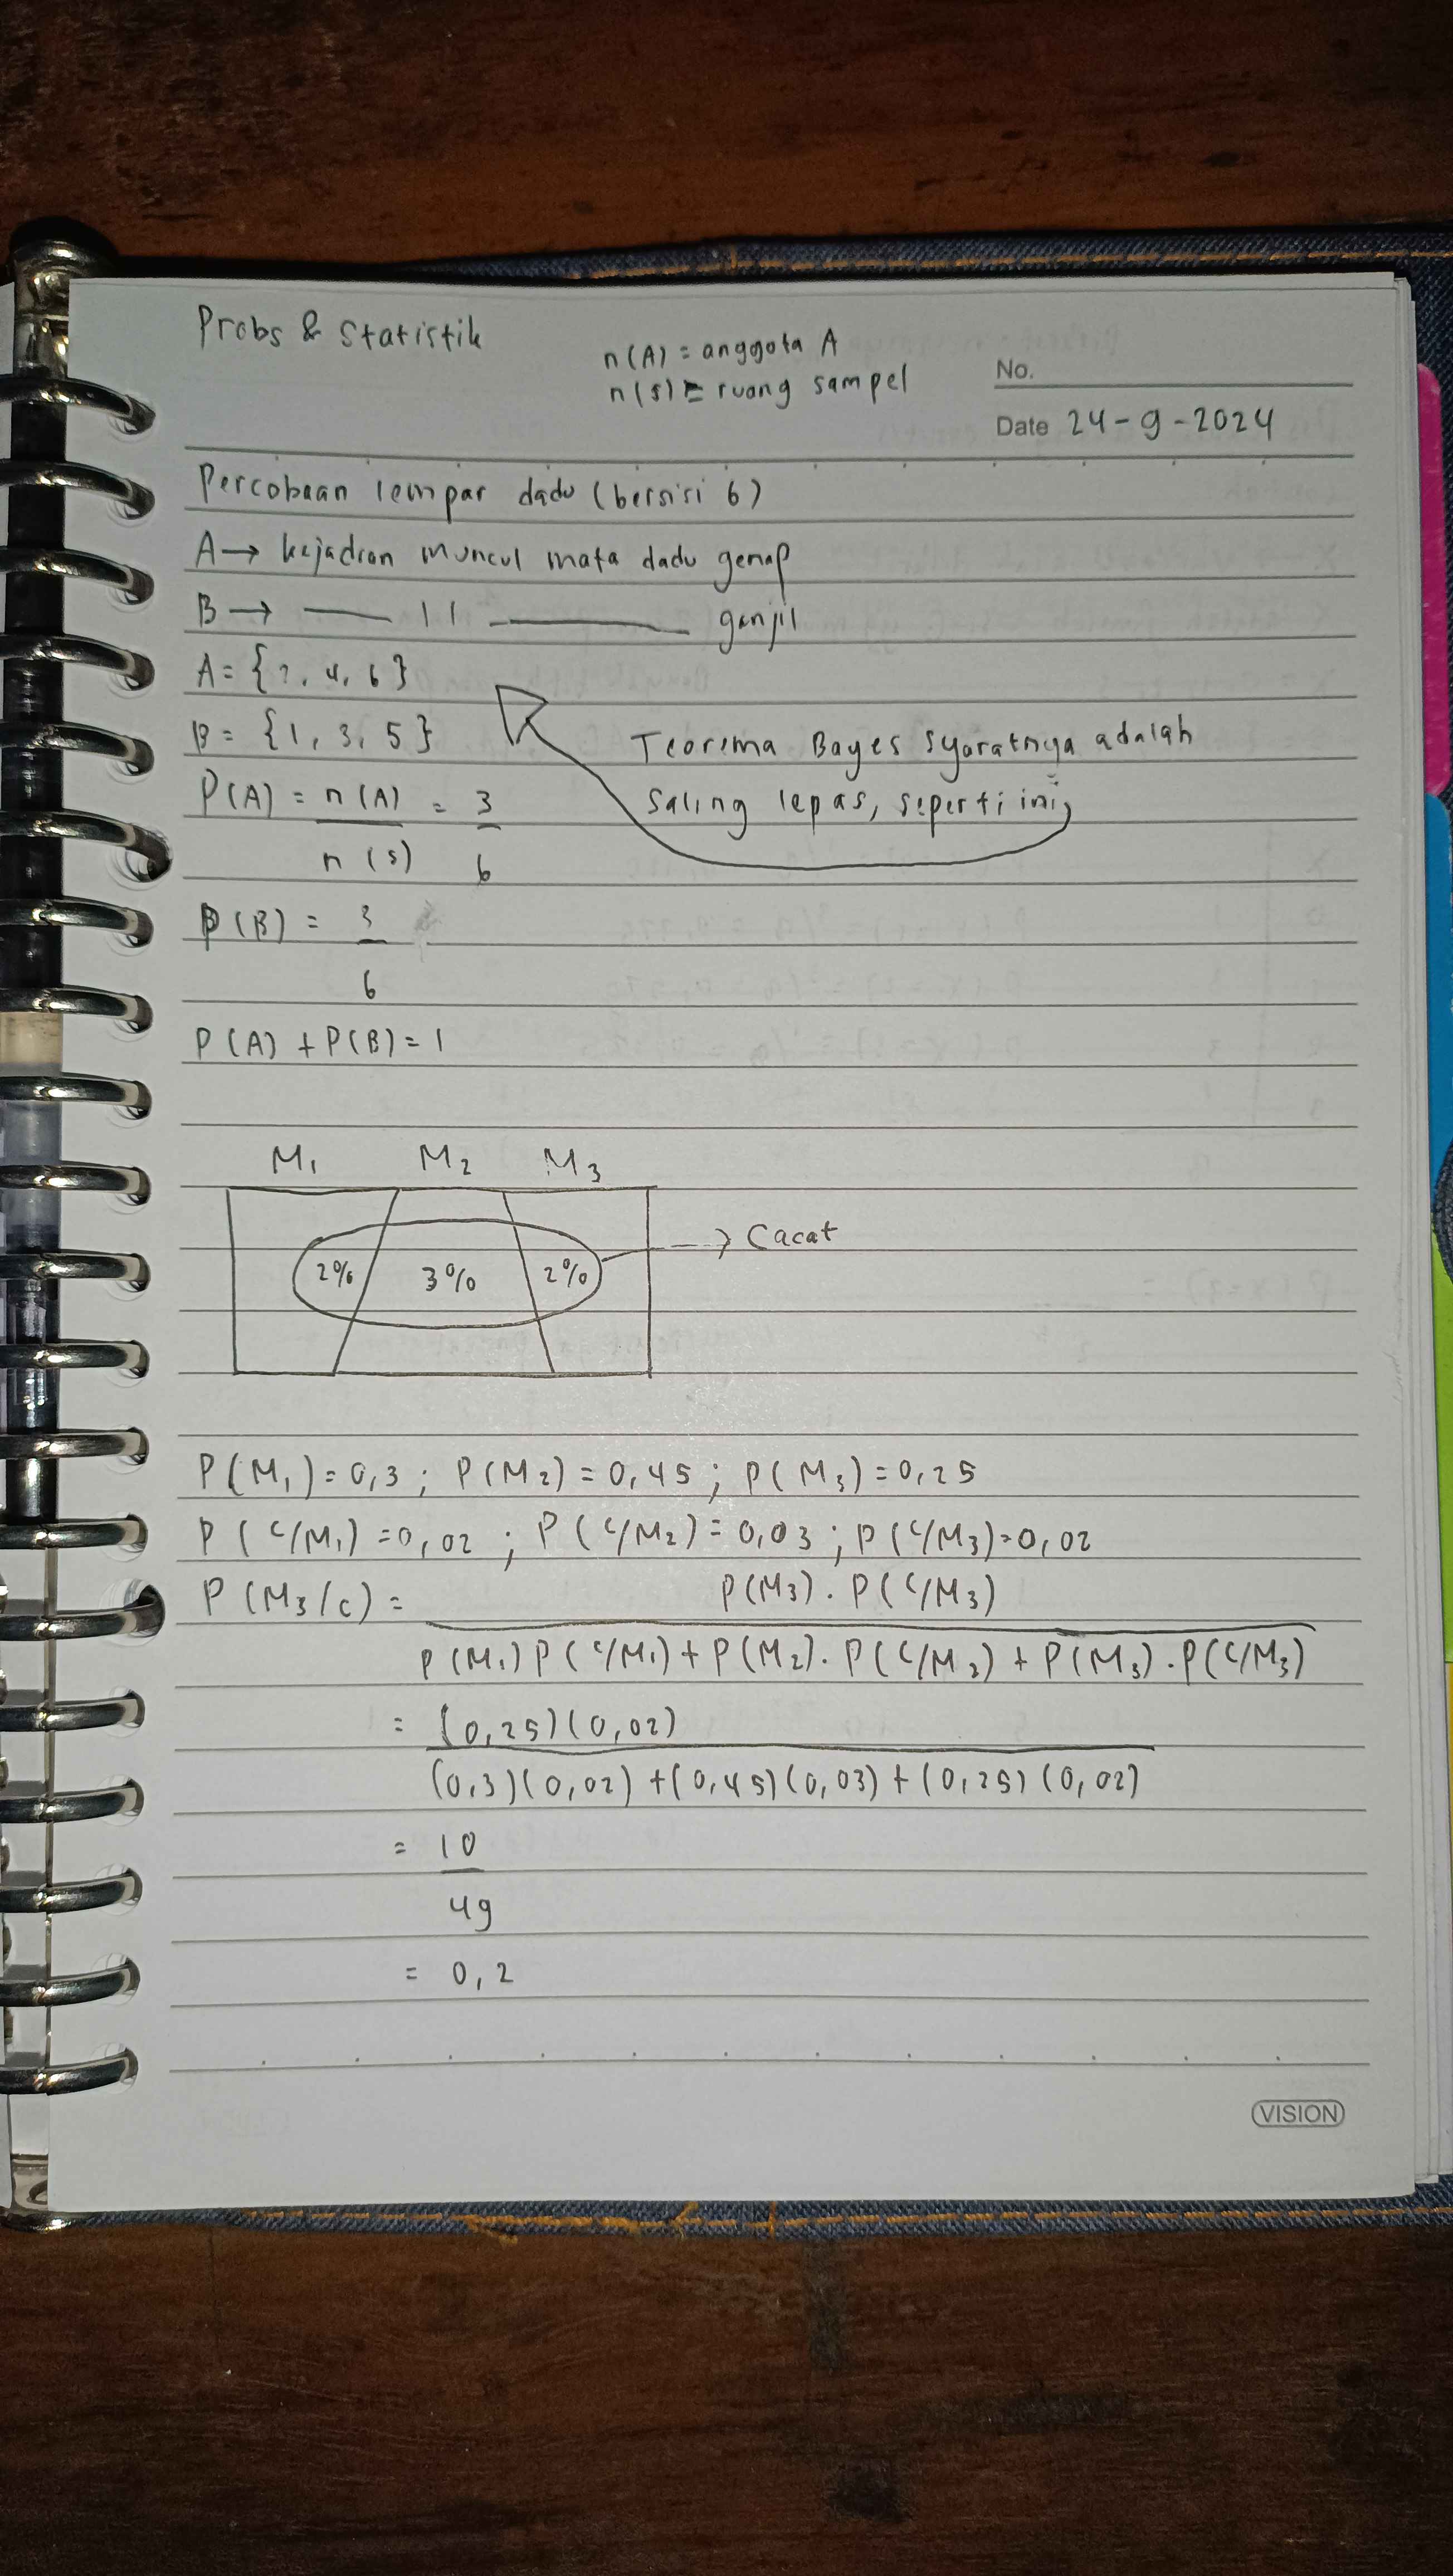 Probs & Statistik
n(A) = anggota A
n(s) = ruang sampel
No.
Date 24-9-2024
Percobaan lempar dadu (bersisi 6)
A → kejadian muncul mata dadu genap
B → —— 11 —— ganjil
A = {2, 4, 6}
B = {1, 3, 5}
Teorema Bayes syaratnya adalah
saling lepas, seperti ini
P(A) = n(A)/n(s) = 3/6
P(B) = 3/6
P(A) + P(B) = 1
M₁ M₂ M₃
2% 3% 2% → Cacat
P(M₁) = 0,3 ; P(M₂) = 0,45 ; P(M₃) = 0,25
P(C/M₁) = 0,02 ; P(C/M₂) = 0,03 ; P(C/M₃) = 0,02
P(M₃/C) = P(M₃) . P(C/M₃)
P(M₁) P(C/M₁) + P(M₂) . P(C/M₂) + P(M₃) . P(C/M₃)
= (0,25)(0,02)
(0,3)(0,02) + (0,45)(0,03) + (0,25)(0,02)
= 10
49
= 0,2
VISION